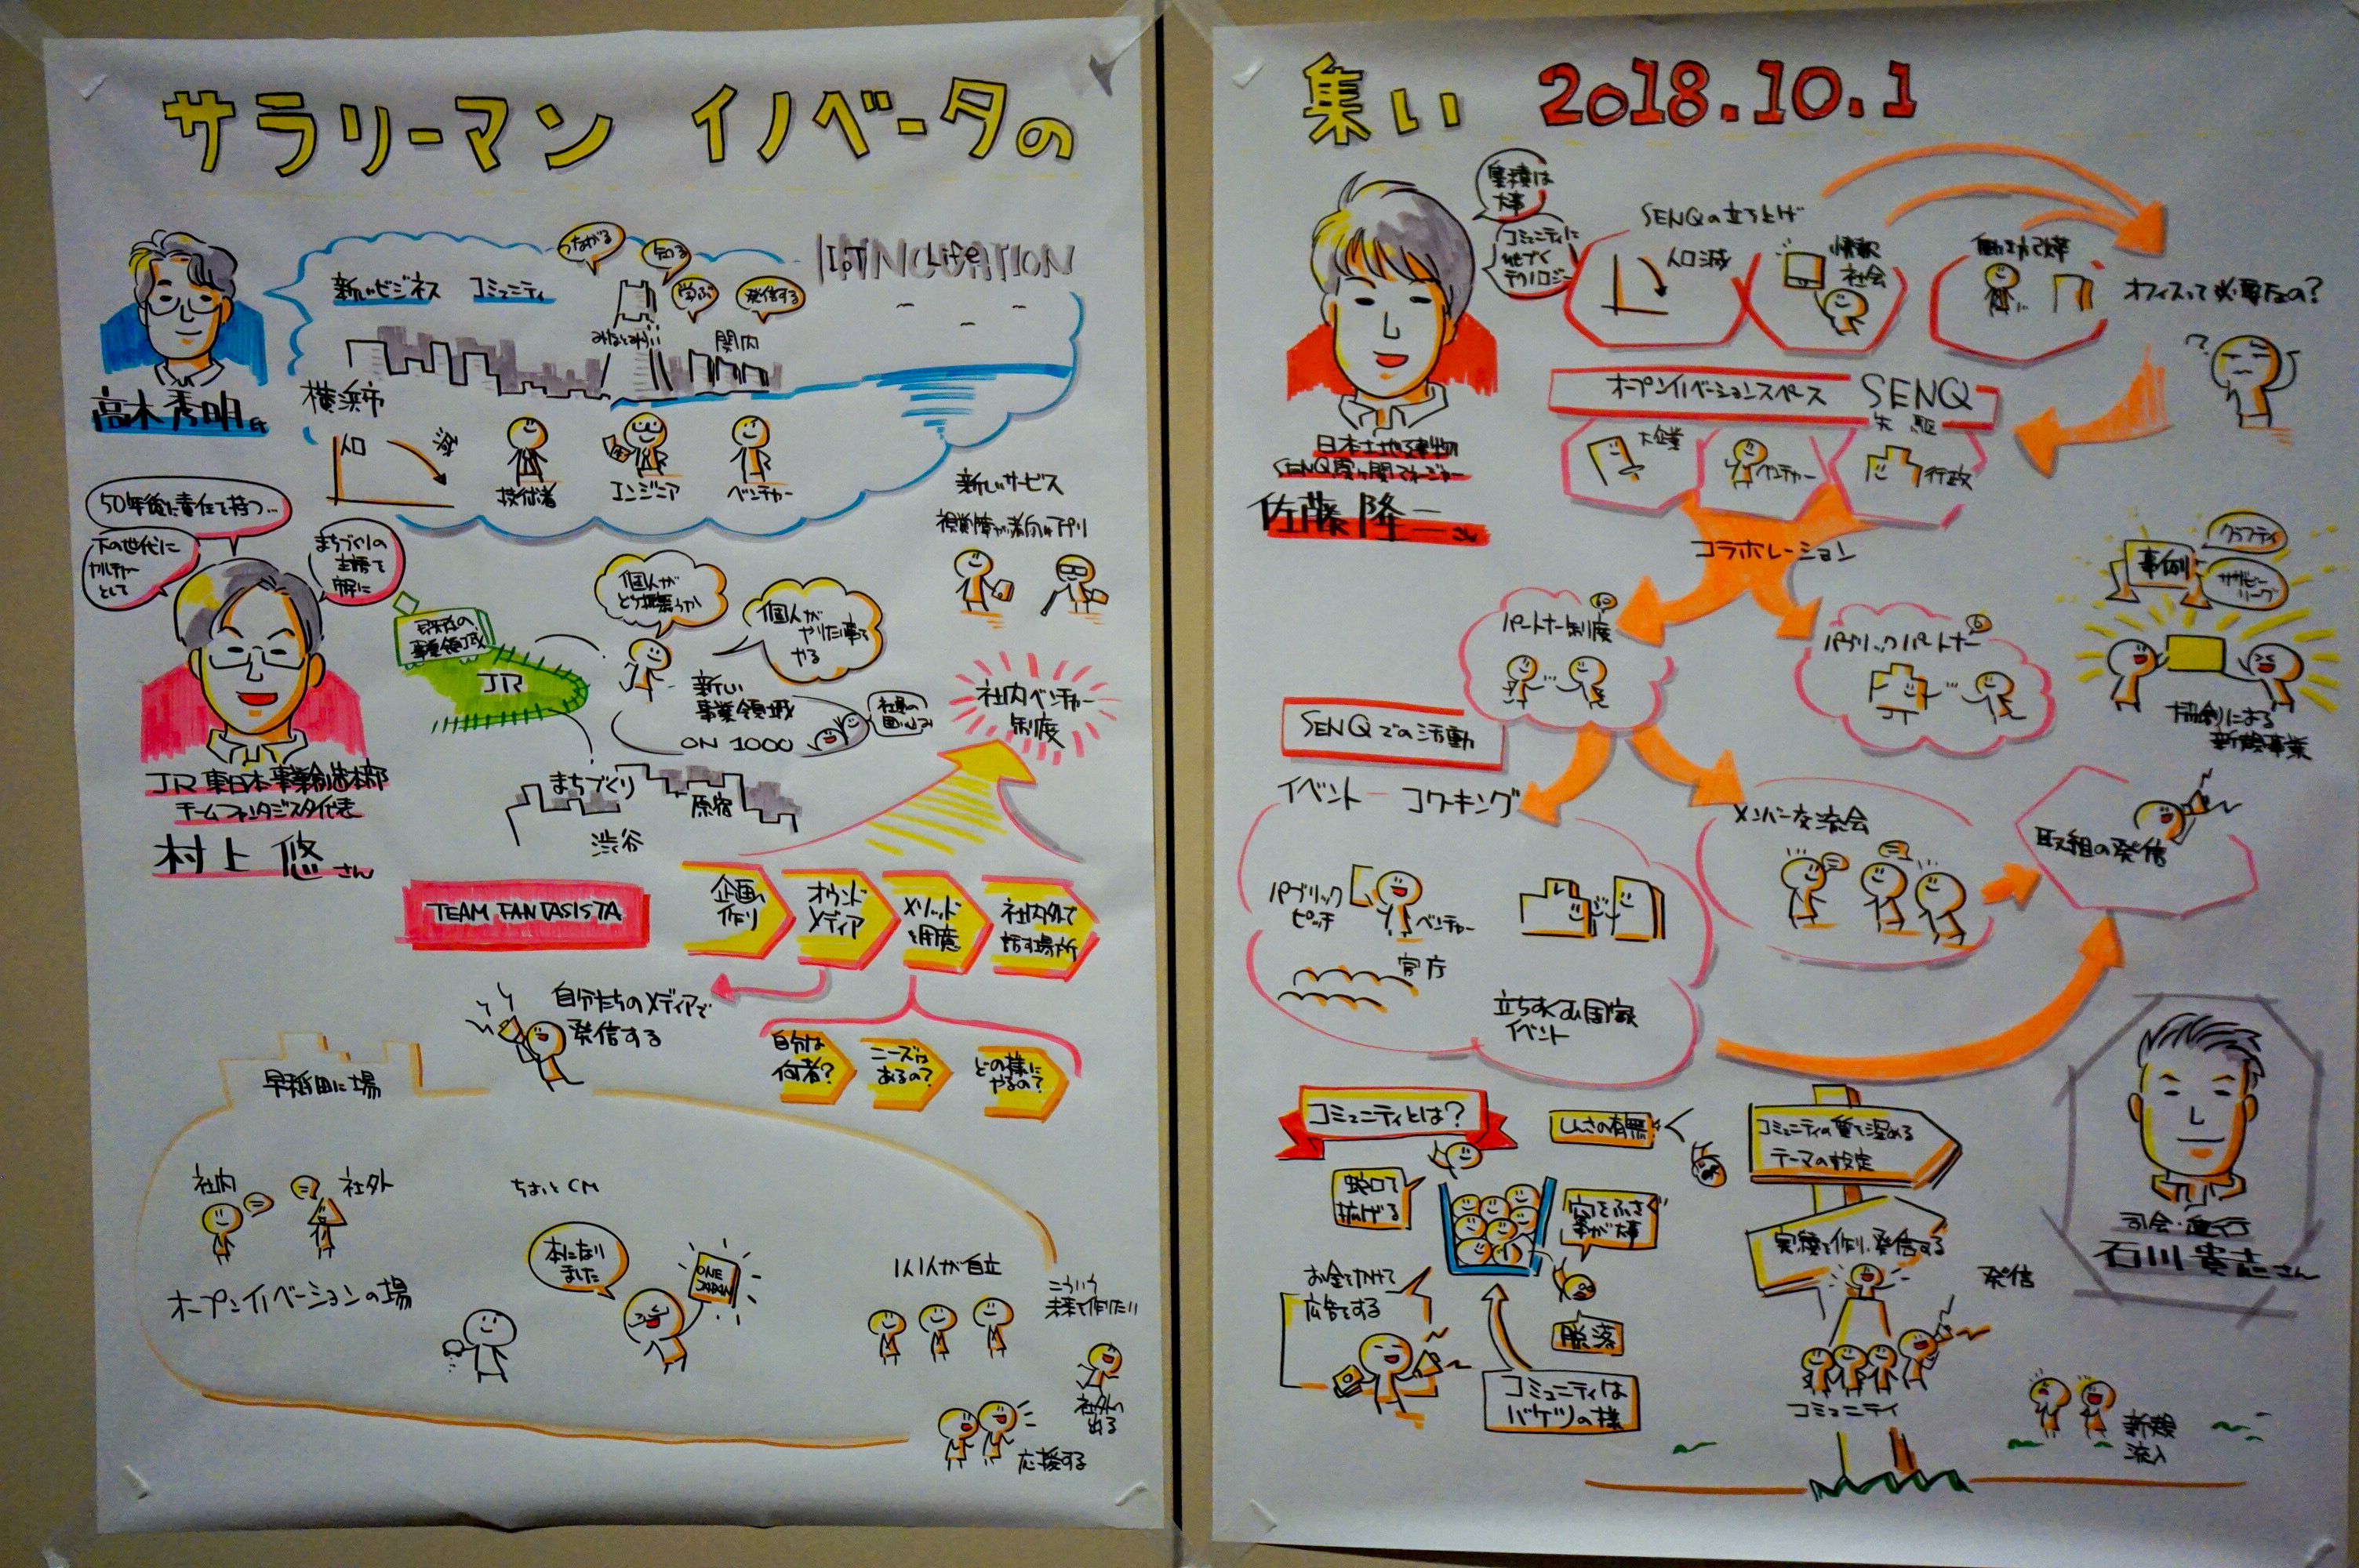 サラリーマン イノベータの
集い 2018.10.1
高木秀明氏
新しいビジネス コミュニティ
つながる
知る
学ぶ
発信する
IoT
Life
INNOVATION
みなとみらい
関内
横浜市
人口
減
技術者
エンジニア
ベンチャー
50年後に責任を持つ…
下の世代に
カルチャー
として
まちづくりの
主語を
JR東日本事業創造本部
チームファンタジスタ代表
村上 悠さん
事業領域
JR
個人が
どう振舞うか
個人が
やりたい事を
やる
新しい
事業領域
ON 1000
新しいサービス
社内ベンチャー
制度
まちづくり
原宿
渋谷
TEAM FANTASISTA
企画
作り
オウンド
メディア
メソッド
を用意
社内外で
話す場所
自分たちのメディアで
発信する
自分は
何者?
ニーズは
あるの?
どの様に
やるの?
早稲田に場
社内
社外
オープンイノベーションの場
ちょいとCM
本になり
ました
ONE
JAPAN
1人1人が自立
こういう
未来を作りたい
社外へ
出る
応援する
実績は
大事
コミュニティに
テクノロジー
日本土地建物
SENQ霞ヶ関マネージャー
佐藤 隆二さん
SENQの立ち上げ
人口減
情報
社会
働き方改革
オフィスって必要なの?
オープンイノベーションスペース SENQ
先駆
大企業
ベンチャー
行政
コラボレーション
パートナー制度
パブリックパートナー
事例
協創による
新規事業
SENQでの活動
イベント コワーキング
パブリック
ピッチ
ベンチャー
官庁
イベント
メンバー交流会
取組の発信
コミュニティとは?
蛇口を
拡げる
穴をふさぐ
事が大事
お金をかけて
広告をする
脱落
コミュニティは
バケツの様
コミュニティの質を深める
テーマの設定
実績を作り、発信する
発信
コミュニティ
新規
流入
司会・進行
石川貴志さん